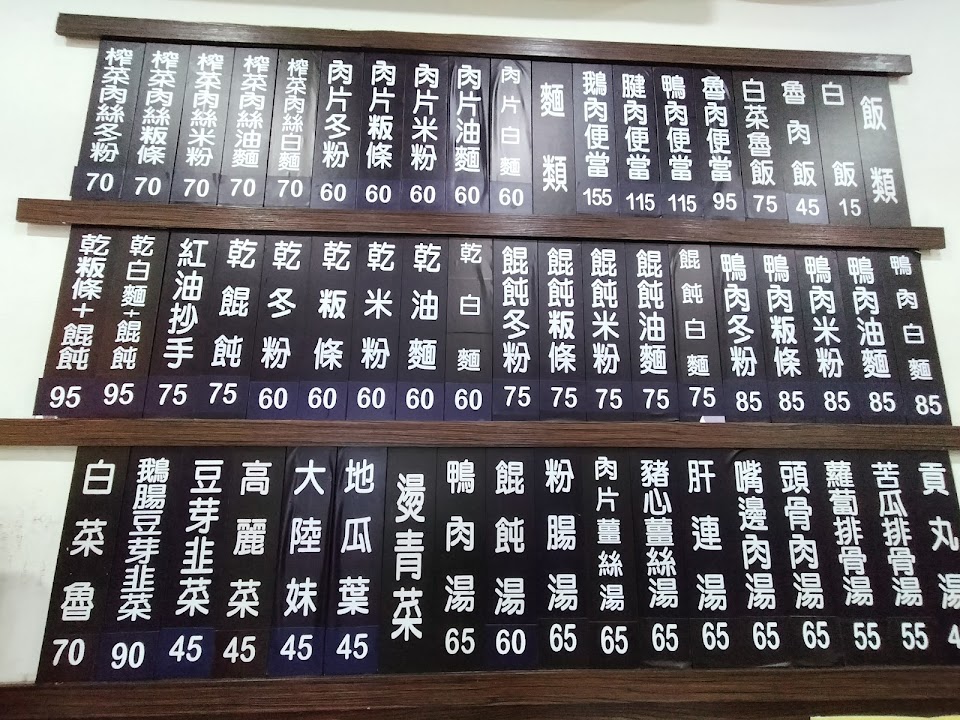 飯類
白飯 15
魯肉飯 45
白菜魯飯 75
魯肉便當 95
鴨肉便當 115
腱肉便當 115
鵝肉便當 155
麵類
肉片白麵 60
肉片油麵 60
肉片米粉 60
肉片粄條 60
肉片冬粉 60
榨菜肉絲白麵 70
榨菜肉絲油麵 70
榨菜肉絲米粉 70
榨菜肉絲粄條 70
榨菜肉絲冬粉 70
鴨肉白麵 85
鴨肉油麵 85
鴨肉米粉 85
鴨肉粄條 85
鴨肉冬粉 85
餛飩白麵 75
餛飩油麵 75
餛飩米粉 75
餛飩粄條 75
餛飩冬粉 75
乾白麵 60
乾油麵 60
乾米粉 60
乾粄條 60
乾冬粉 60
乾餛飩 75
紅油抄手 75
乾白麵+餛飩 95
乾粄條+餛飩 95
貢丸湯
苦瓜排骨湯 55
蘿蔔排骨湯 55
頭骨肉湯 65
嘴邊肉湯 65
肝連湯 65
豬心薑絲湯 65
肉片薑絲湯 65
粉腸湯 65
餛飩湯 60
鴨肉湯 65
燙青菜
地瓜葉 45
大陸妹 45
高麗菜 45
豆芽韭菜 45
鵝腸豆芽韭菜 90
白菜魯 70